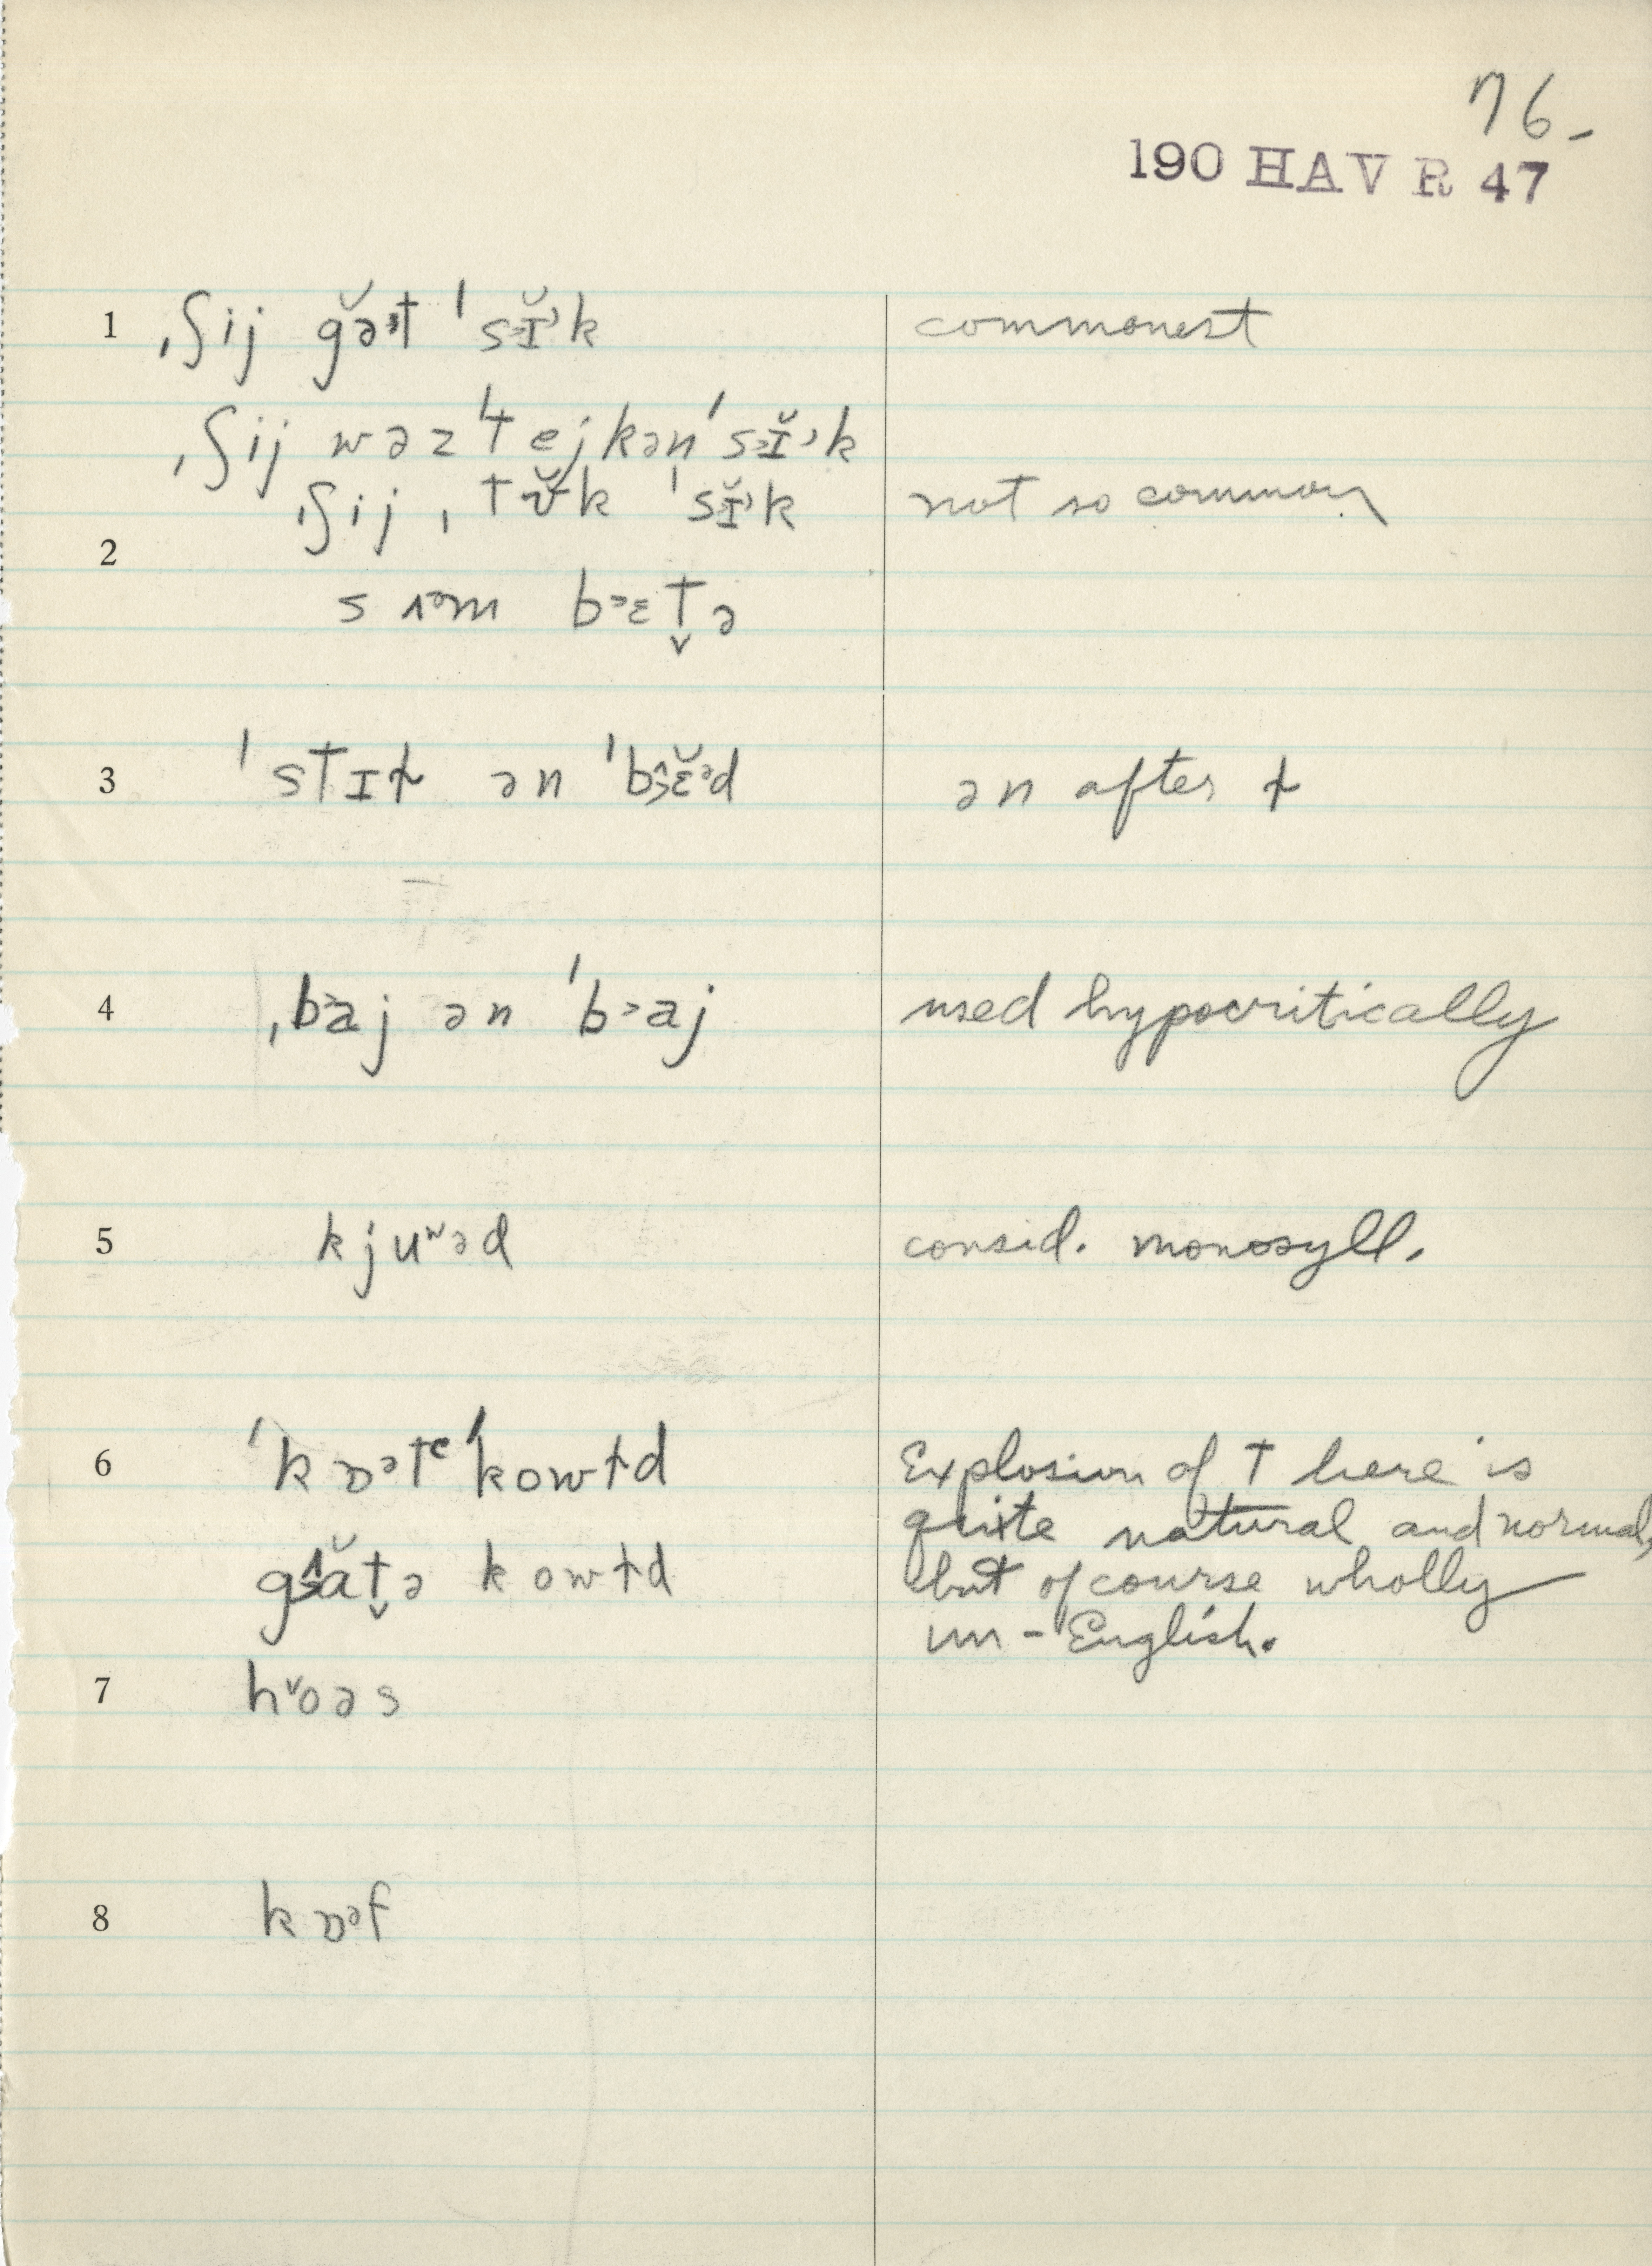 76-
190 HAV R 47
1 ˌʃij gə̆ɜt ˈsɪ̆ᵊk commonest
ˌʃij wəz ˈtejkən ˈsɪ̆ᵊk
ˌʃij ˌtʊ̆k ˈsɪ̆ᵊk not so common
2
sʌᵊm bᵊɛt̬ə
3 ˈstɪɫ ən ˈbɛ̆ᵊd ən after ɫ
4 ˌbᵊaj ən ˈbᵊaj used hypocritically
5 kjuʷəd consid. monosyll.
6 ˈkɒᵊtᶜ ˈkowɫd Explosion of t here is
quite natural and normal,
gɑ̆t̬ə kowɫd but of course wholly
un-English.
7 hᵛoəs
8 kɒᵊf